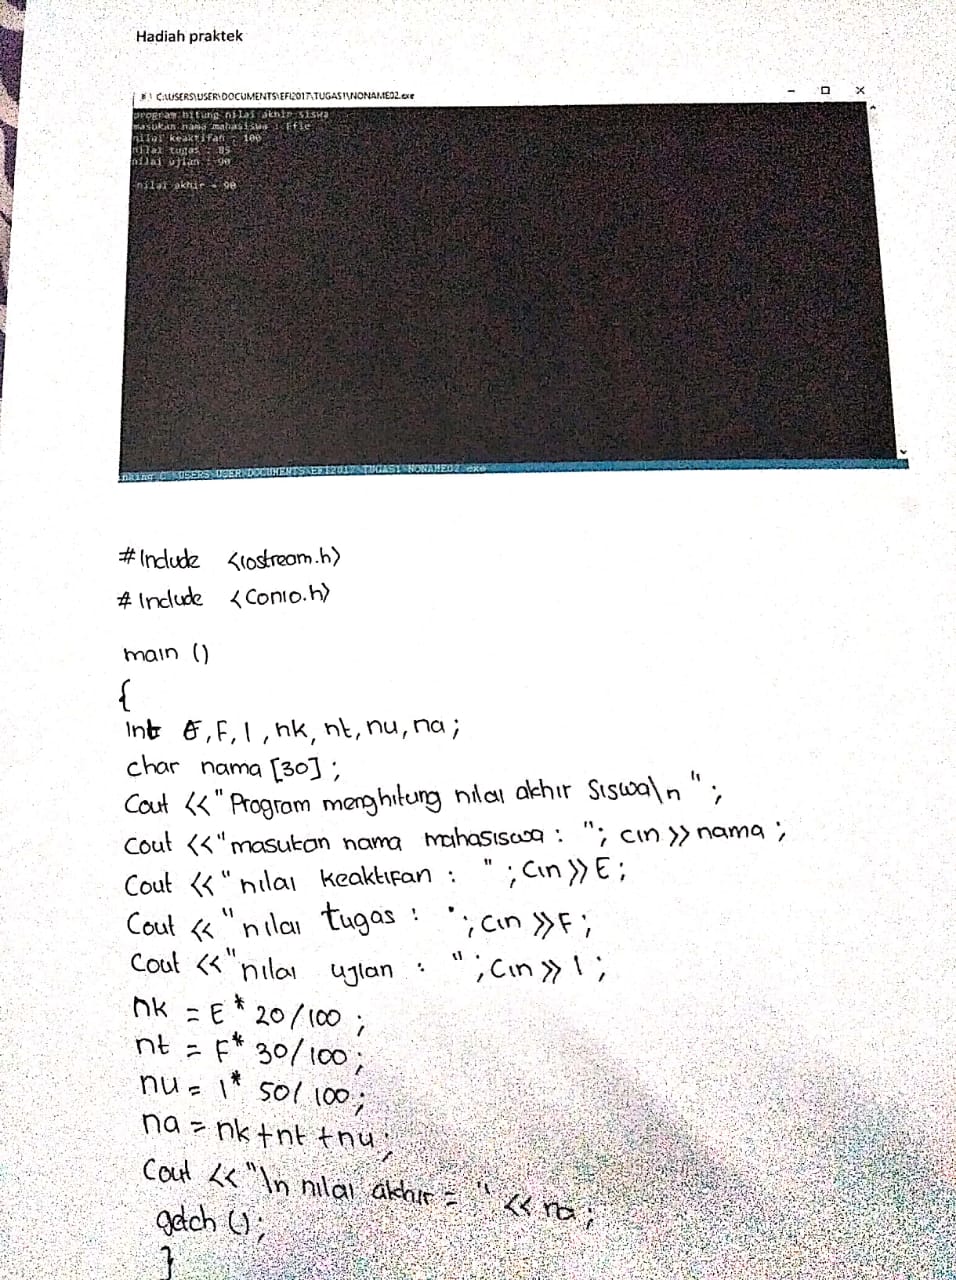 Hadiah praktek
C:\USERS\USER\DOCUMENTS\EFI2017\TUGAS1\NONAME02.exe
program hitung nilai akhir siswa
masukan nama mahasiswa : Efie
nilai keaktifan : 100
nilai tugas : 85
nilai ujian : 90
nilai akhir = 90
nning C:\USERS\USER\DOCUMENTS\EFI2017\TUGAS1\NONAME02.exe
#Include <iostream.h>
# Include <Conio.h>
main ()
{
Int E, F, I, nk, nt, nu, na ;
char nama [30] ;
Cout <<"Program menghitung nilai akhir Siswa\n " ;
Cout <<"masukan nama mahasiswa : "; cin >> nama ;
Cout <<"nilai keaktifan : " ; Cin >> E ;
Cout <<"nilai tugas : "; Cin >> F ;
Cout <<"nilai ujian : " ; Cin >> I ;
nk = E * 20/100 ;
nt = F* 30/100 ;
nu = I* 50/100 ;
na = nk +nt +nu ;
Cout <<"\n nilai akhir = " << na ;
getch () ;
}